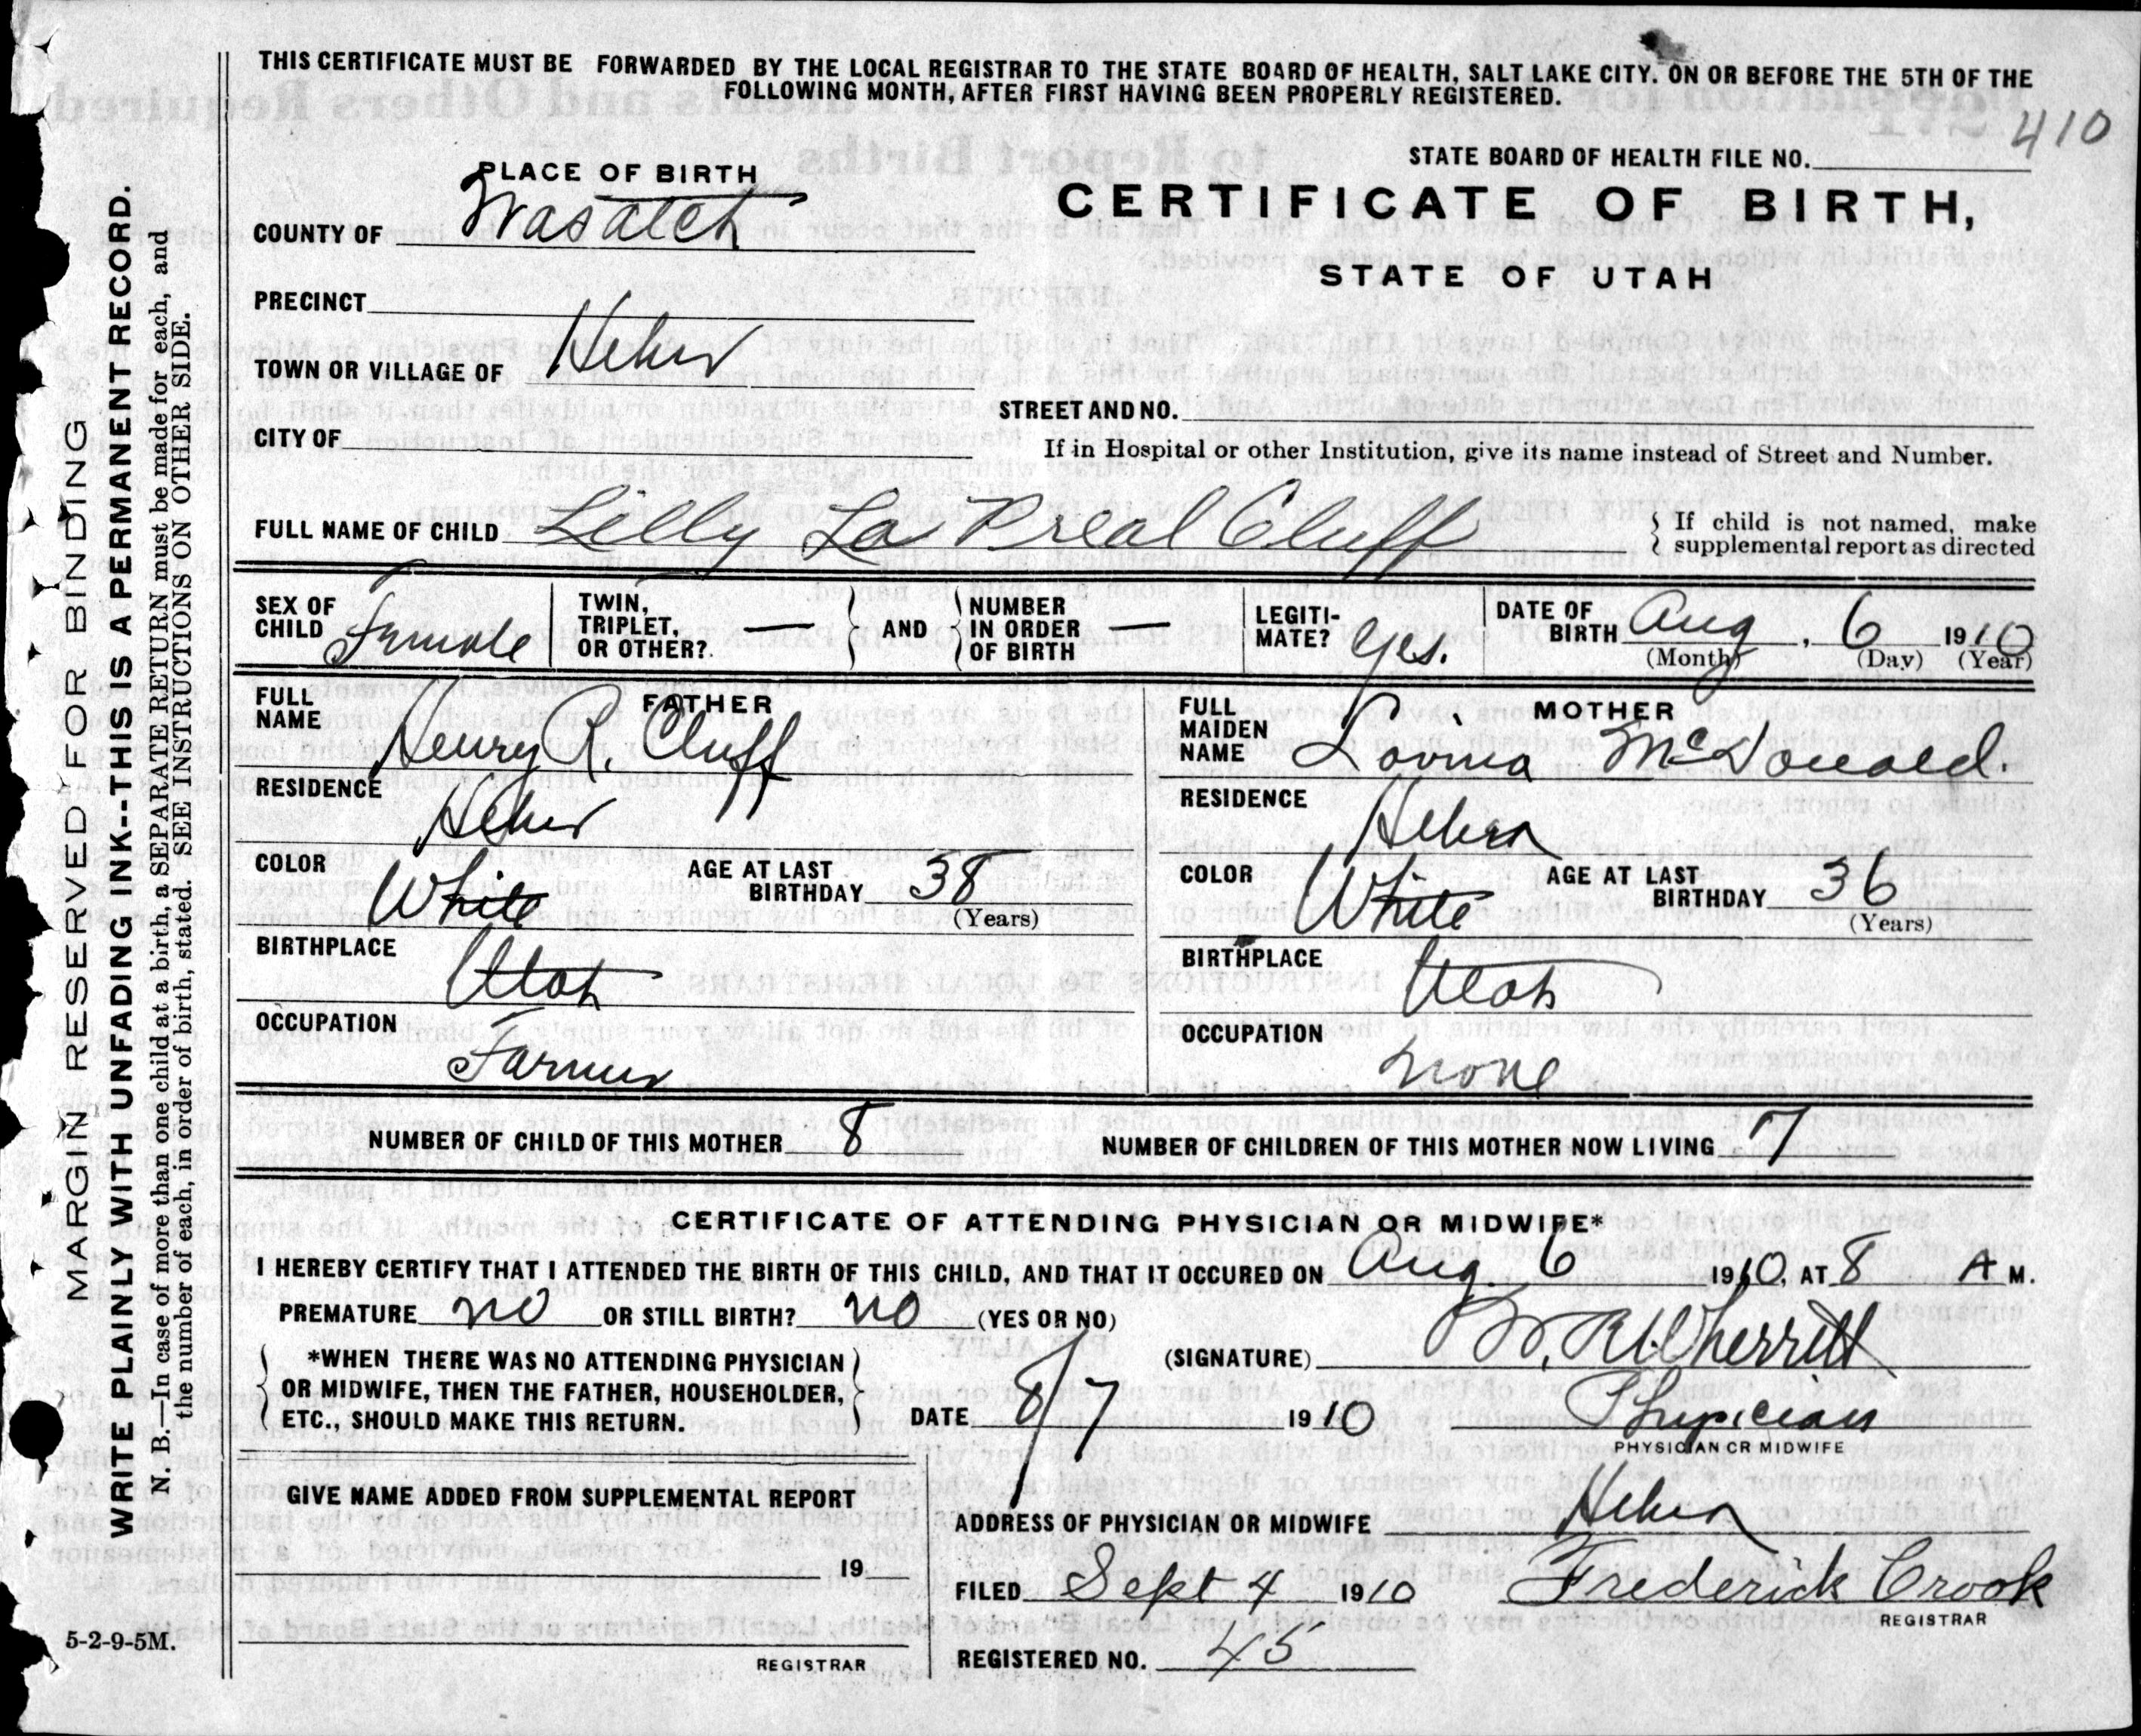 THIS CERTIFICATE MUST BE FORWARDED BY THE LOCAL REGISTRAR TO THE STATE BOARD OF HEALTH, SALT LAKE CITY. ON OR BEFORE THE 5TH OF THE
FOLLOWING MONTH, AFTER FIRST HAVING BEEN PROPERLY REGISTERED.
410
STATE BOARD OF HEALTH FILE NO.
PLACE OF BIRTH
CERTIFICATE OF BIRTH,
COUNTY OF Wasatch
STATE OF UTAH
PRECINCT
TOWN OR VILLAGE OF Heber
STREET AND NO.
CITY OF
If in Hospital or other Institution, give its name instead of Street and Number.
FULL NAME OF CHILD Lilly La Cluff
If child is not named, make
supplemental report as directed
SEX OF CHILD Female
TWIN, TRIPLET, OR OTHER? —
AND
NUMBER IN ORDER OF BIRTH —
LEGITI-MATE? Yes.
DATE OF BIRTH Aug, 6 1910
(Month) (Day) (Year)
FATHER
FULL NAME Henry R. Cluff
RESIDENCE Heber
COLOR White AGE AT LAST BIRTHDAY 38
(Years)
BIRTHPLACE Utah
OCCUPATION Farmer
MOTHER
FULL MAIDEN NAME McDonald.
RESIDENCE Heber
COLOR White AGE AT LAST BIRTHDAY 36
(Years)
BIRTHPLACE Utah
OCCUPATION none
NUMBER OF CHILD OF THIS MOTHER 8 NUMBER OF CHILDREN OF THIS MOTHER NOW LIVING 7
CERTIFICATE OF ATTENDING PHYSICIAN OR MIDWIFE*
I HEREBY CERTIFY THAT I ATTENDED THE BIRTH OF THIS CHILD, AND THAT IT OCCURED ON Aug. 6 1910, AT 8 A M.
PREMATURE no OR STILL BIRTH? no (YES OR NO)
*WHEN THERE WAS NO ATTENDING PHYSICIAN
OR MIDWIFE, THEN THE FATHER, HOUSEHOLDER,
ETC., SHOULD MAKE THIS RETURN.
(SIGNATURE) Wherritt
DATE 8/7 1910 Physician
PHYSICIAN OR MIDWIFE
GIVE NAME ADDED FROM SUPPLEMENTAL REPORT
19
REGISTRAR
ADDRESS OF PHYSICIAN OR MIDWIFE Heber
FILED Sept 4 1910 Frederick Crook
REGISTRAR
REGISTERED NO. 45
5-2-9-5M.
MARGIN RESERVED FOR BINDING
WRITE PLAINLY WITH UNFADING INK--THIS IS A PERMANENT RECORD.
N. B.—In case of more than one child at a birth, a SEPARATE RETURN must be made for each, and
the number of each, in order of birth, stated. SEE INSTRUCTIONS ON OTHER SIDE.